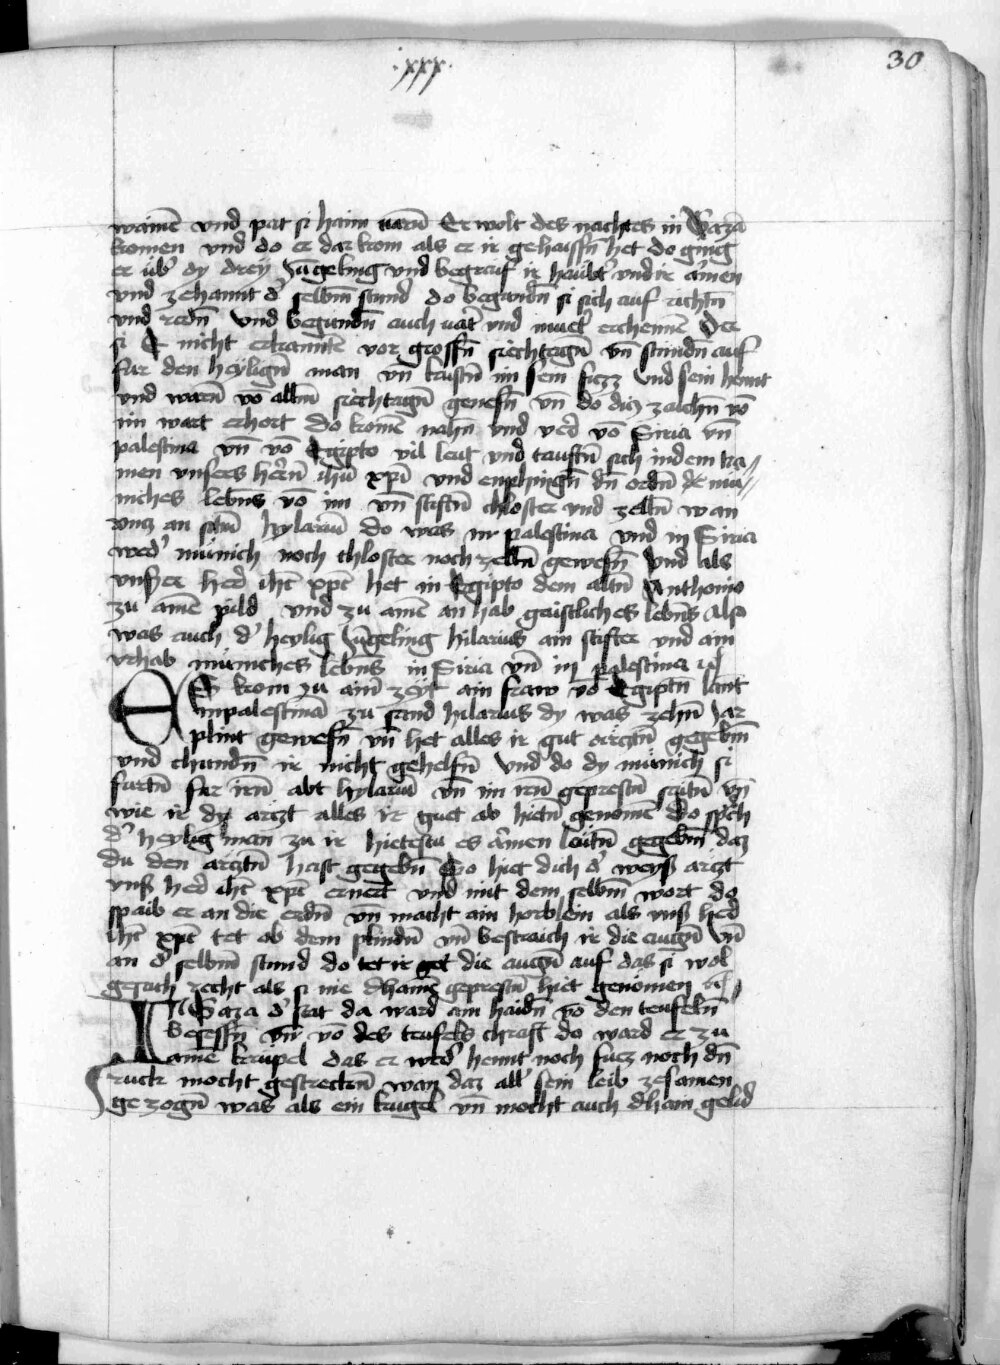 .xxx.
30
wainē vnd pat si haim varñ Er wolt des nachtes in Gazā
komen vnd do er dar kom als er ir gehaissñ het do ging
er üb' dy dreÿ Jūgeling vnd begraif ir haübt' vnd ir āmen
vnd zehannt d' selbm̄ stund do begundñ si sich auf richtñ
vnd redñ vnd begundñ auch vat' vnd muet' erchennē Der
si E nicht erkannten vor grossñ siechtagñ vñ stundñ auf
fur den heÿligñ man vñ kustñ im sein fuzz vnd sein hennt
vnd warñ vō allm̄ siechtagñ genesñ vñ do diz zaichñ vō
im wart erhort do komē nahñ vnd verr vō Siria vñ
palestina vñ vō Egipto vil leut vnd tauftñ sich in dem na//
men vnsers herrñ ihū xpī vnd enphingñ dñ ordñ des mü//
niches lebns vō im vñ stiftñ chloster vnd zellñ wan
vnz an sand hylariū do was in palestina vnd in Siria
wed' münich noch chloster noch zellñ gewesñ Vnd als
vnser herr ihc xpc het in Egipto dem altñ Anthonio
zu amē pild vnd zu amē an hab gaistliches lebñs Also
was auch d' heylig Jūgeling hilarius ain stifter vnd ain
vrhab müniches lebñs in Siria vñ in palestina
ES kom zu ainē zeÿt ain fraw vō Egiptñ lant
in palestinā zu sand hilarius dy was zehñ Jar
plint gewesñ vñ het alles ir gut ārcztñ gegebm̄
vnd chundñ ir nicht gehelfñ vnd do dy münich si
furtñ fur irñ abt hylariū vñ im irñ geprestñ saitñ vñ
wie ir dy arczt alles ir guet ab hietñ genomē do sp'ch
d' heylig man zu ir hietestu es ārmen leutñ gegebm̄ daz
du den ārcztñ hast gegebñ So hiet dich d' weyß arczt
vnß herr ihc xpc ernert vnd mit dem selbm̄ wort do
spaib er an die erdñ vñ macht ain horblein als vnß herr
ihc xpc tet ob dem plindñ vñ bestraich ir die augñ vñ
an d' selbm̄ stund do tet ir got die augñ auf das si wol
gesach recht als si nie dhainē geprestñ hiet genomen
IN Gaza d' stat da ward am haidñ vō den teufelñ
besessñ vñ vō des teufels chraft do ward er zu
ainē krupel das er wed' hennt noch fuez noch dñ
ruck mocht gestreckñ wan daz all' sein leib zesamen
gezogñ was als ein kugel vñ mocht auch dhain gelid